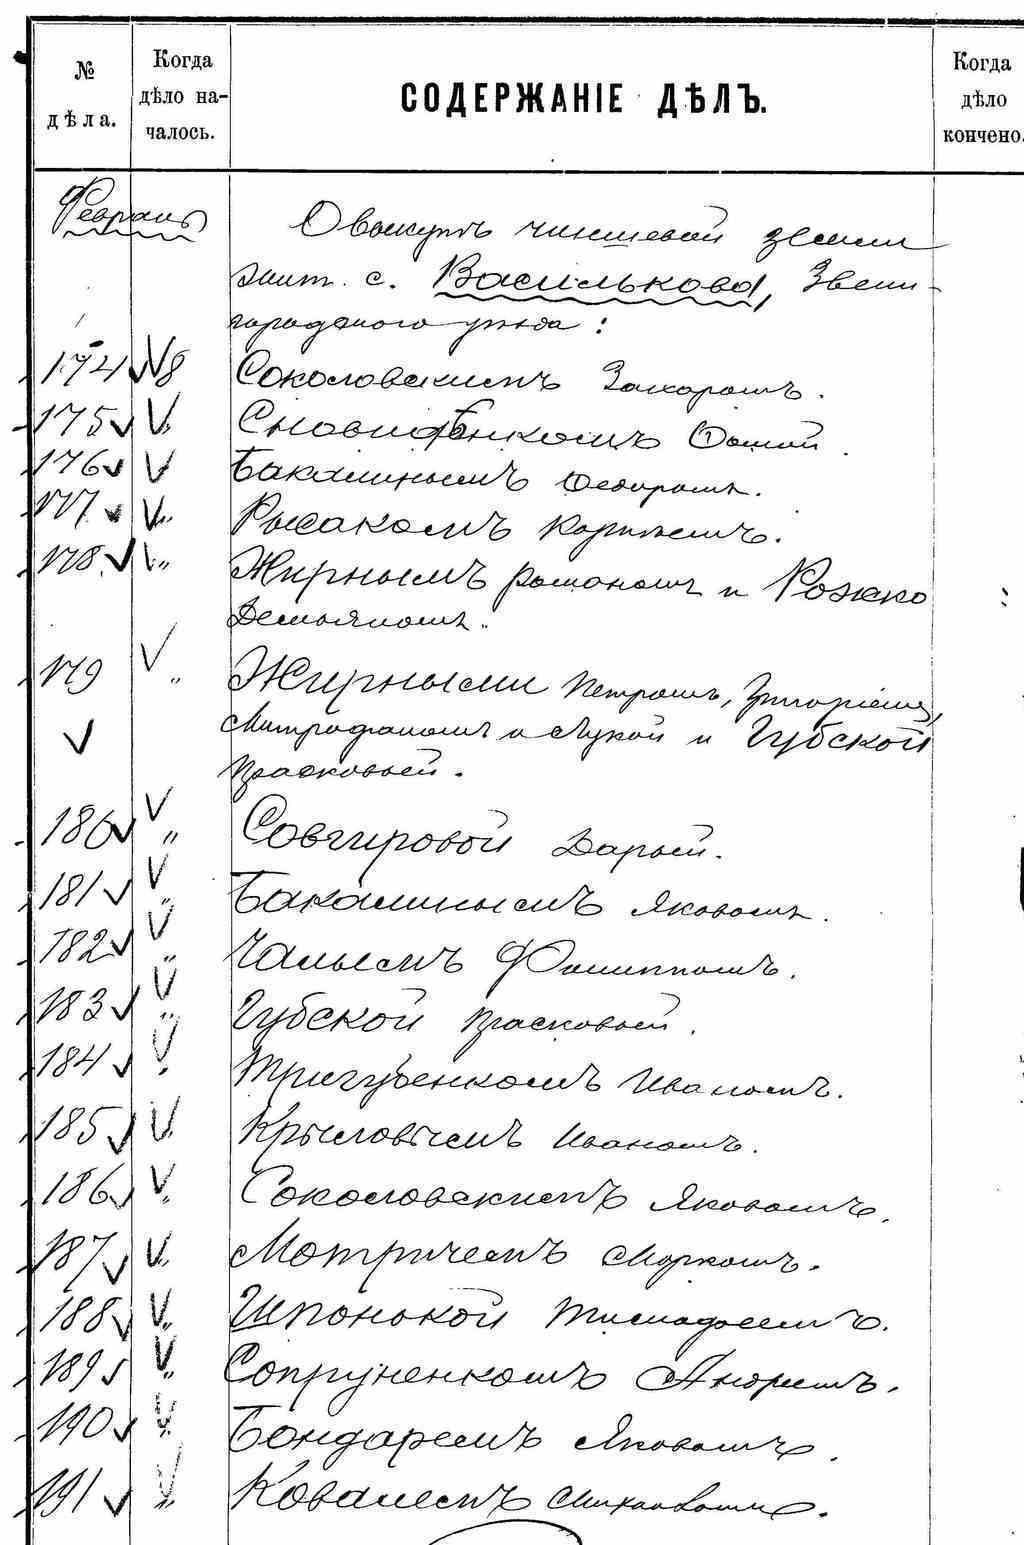 № дѣла.
Когда дѣло на-чалось.
СОДЕРЖАНІЕ ДѢЛЪ.
Когда дѣло кончено.
Февраль
О выкупѣ чиншевой земли
жит. с. Василькова, Звени-
городского уѣзда:
174 8 Соколовскимъ Захаромъ.
175 " Сновиденкомъ Фомой.
176 " Бакалинымъ Федоромъ.
177 " Рысакомъ Карпомъ.
178 " Жирнымъ Романомъ и Рожко
Демьяномъ.
179 " Жирными Петромъ, Григоріемъ,
Митрофаномъ и Лукой и Губской
Прасковьей.
180 " Совгировой Дарьей.
181 " Бакалинымъ Яковомъ.
182 " Чалымъ Филиппомъ.
183 " Губской Прасковьей.
184 " Тригубенкомъ Иваномъ.
185 " Крыловымъ Иваномъ.
186 " Соколовскимъ Яковомъ.
187 " Мотричемъ Маркомъ.
188 " Шпонькой Тимофеемъ.
189 " Сопруненкомъ Андреемъ.
190 " Бондаремъ Яковомъ.
191 " Ковалемъ